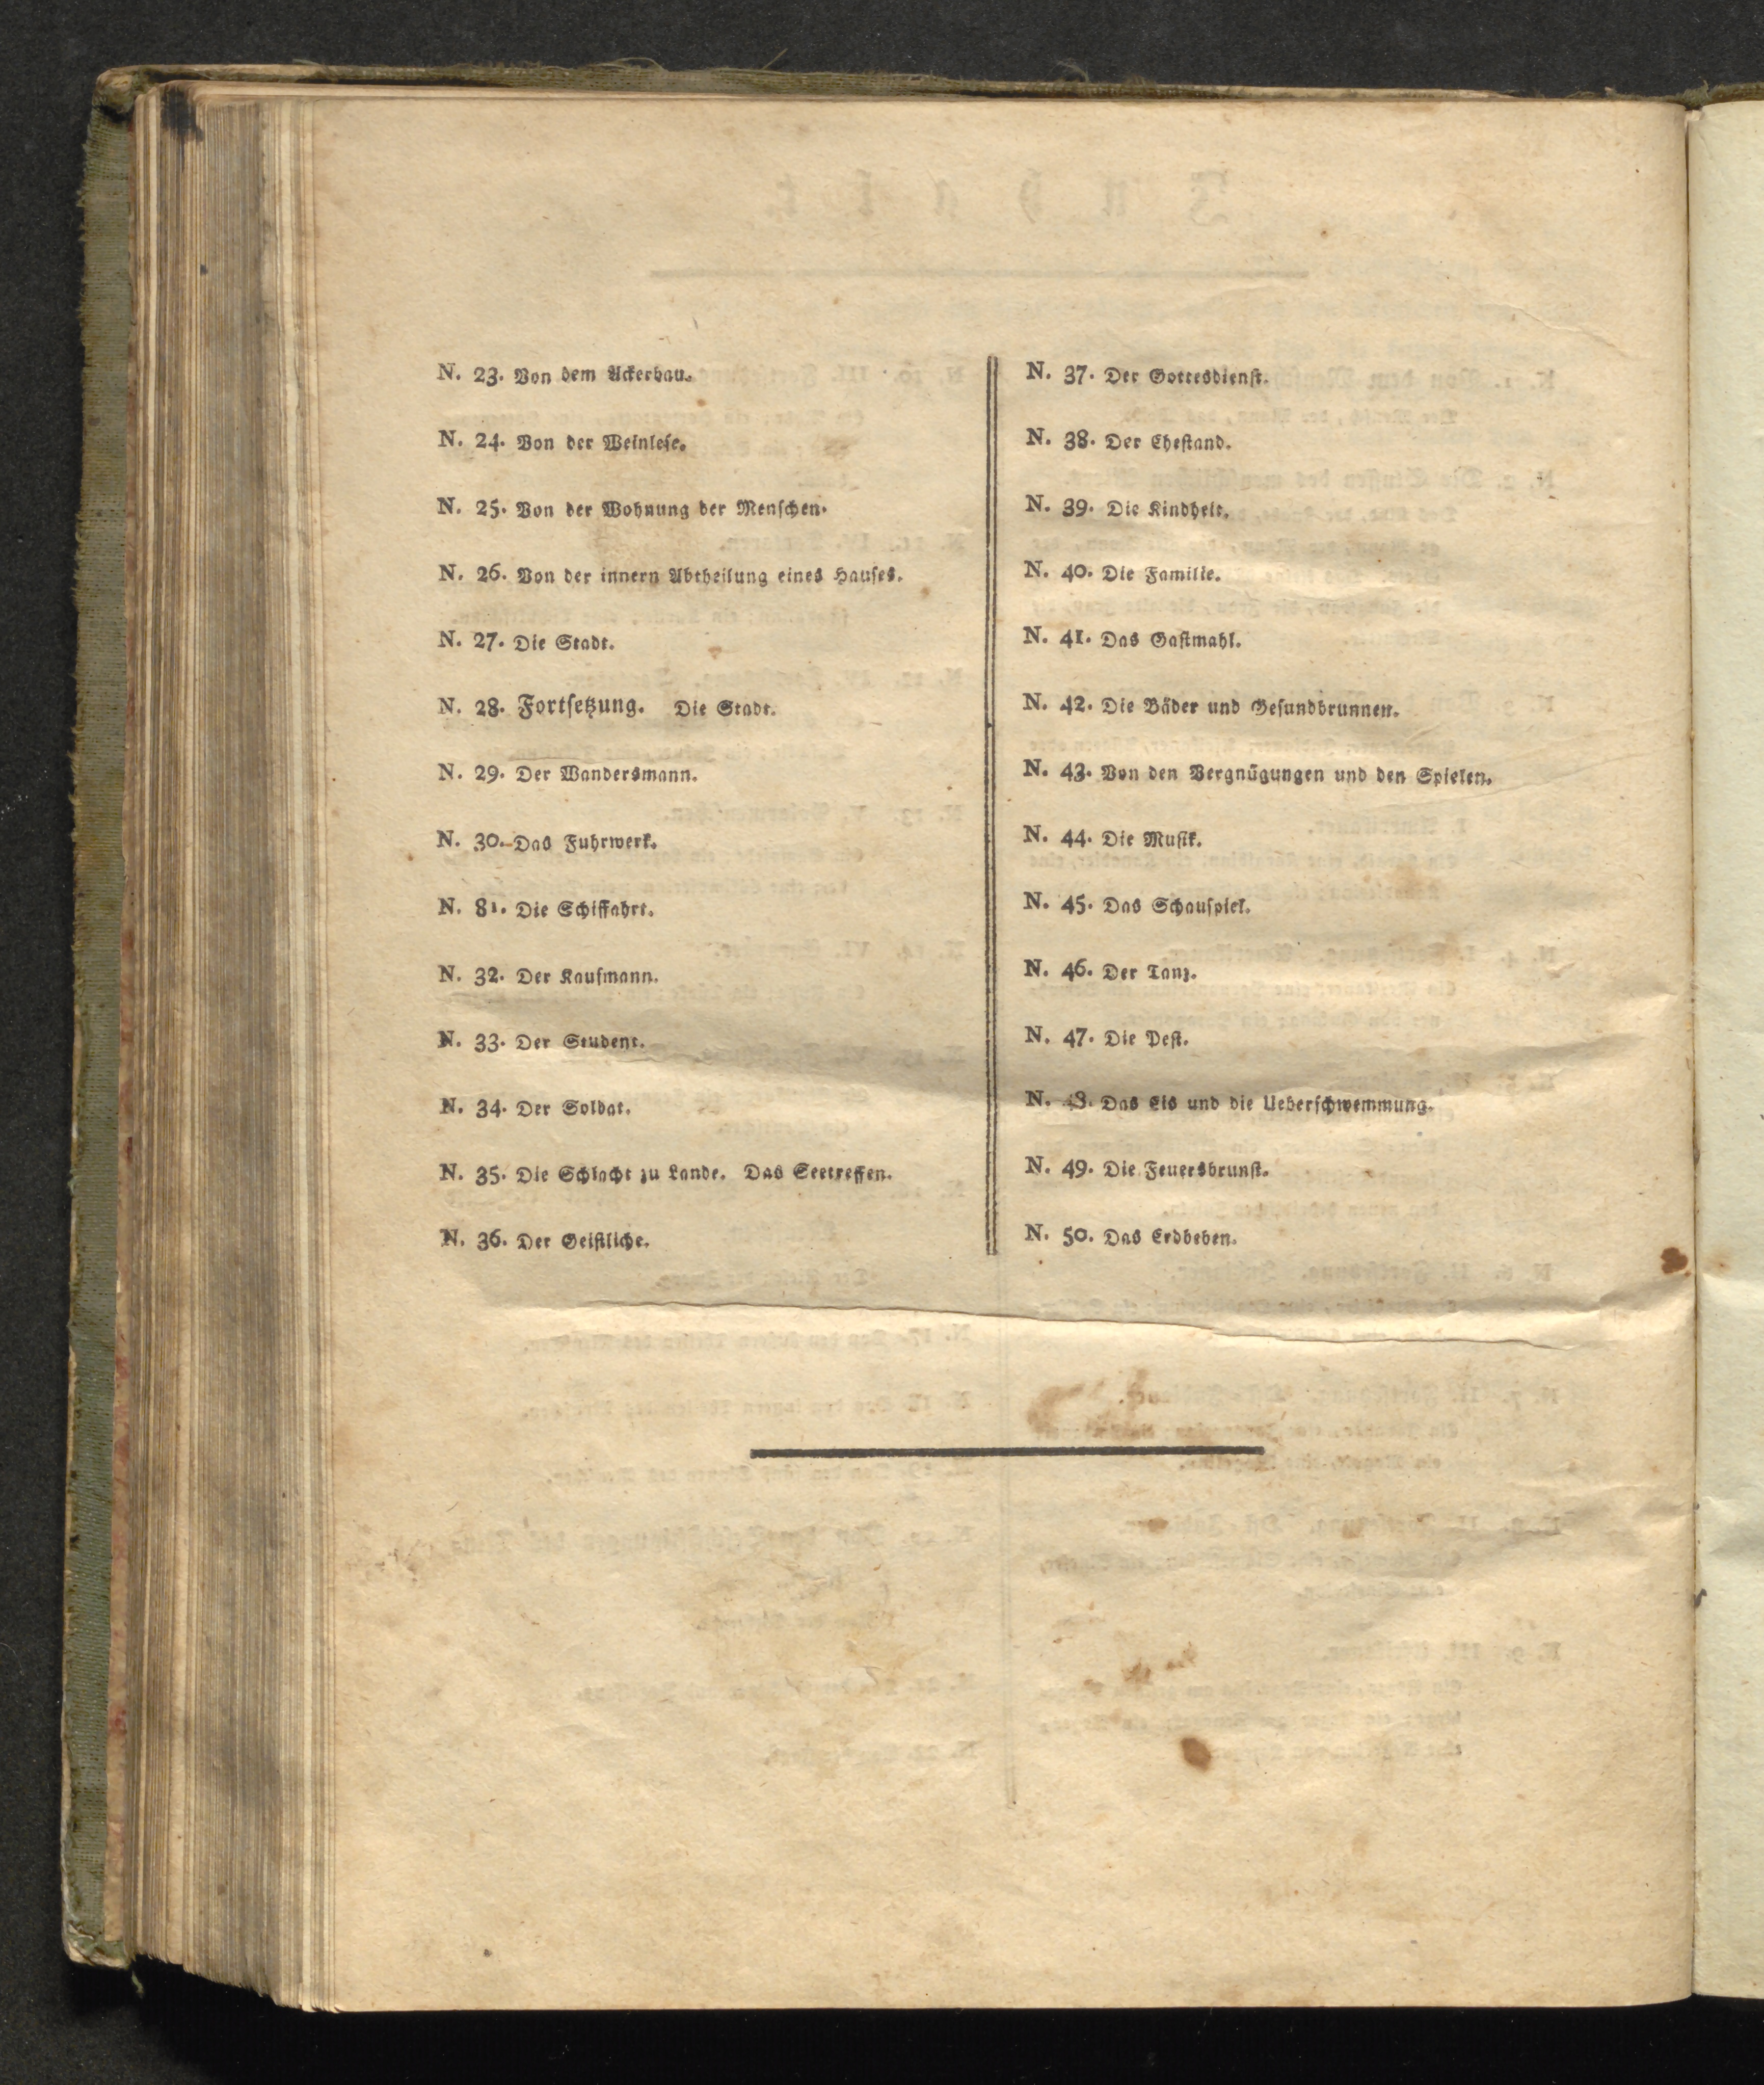 N. 23. Von dem Ackerbau.
N. 24. Von der Weinlese.
N. 25. Von der Wohnung der Menschen.
N. 26. Von der innern Abtheilung eines Hauses.
N. 27. Die Stadt.
N. 28. Fortsetzung. Die Stadt.
N. 29. Der Wandersmann.
N. 30. Das Fuhrwerk.
N. 81. Die Schiffahrt.
N. 32. Der Kaufmann.
N. 33. Der Student.
N. 34. Der Soldat.
N. 35. Die Schlacht zu Lande. Das Seetreffen.
N. 36. Der Geistliche.
N. 37. Der Gottesdienst.
N. 38. Der Ehestand.
N. 39. Die Kindheit.
N. 40. Die Familie.
N. 41. Das Gastmahl.
N. 42. Die Bäder und Gesundbrunnen.
N. 43. Von den Vergnügungen und den Spielen.
N. 44. Die Musik.
N. 45. Das Schauspiel.
N. 46. Der Tanz.
N. 47. Die Pest.
N. 48. Das Eis und die Ueberschwemmung.
N. 49. Die Feuersbrunst.
N. 50. Das Erdbeben.